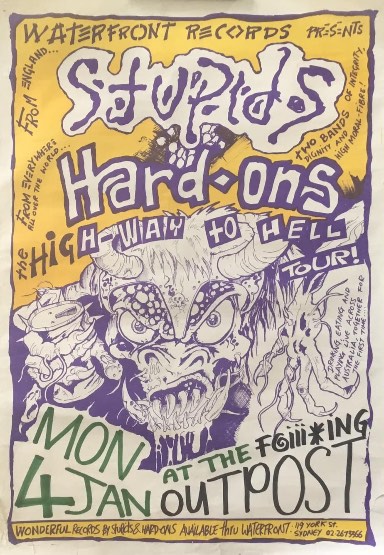 WATERFRONT RECORDS PRESENTS
FROM ENGLAND...
Stupids
TWO BANDS OF INTEGRITY,
DIGNITY AND
HIGH MORAL-FIBRE!
FROM EVERYWHERE
ALL OVER THE WORLD...
Hard-ons
the HIGHWAY to HELL
TOUR!
DRINKING, EATING AND
PLAYING LIVE ACROSS
AUSTRALIA TOGETHER FOR
THE FIRST TIME...
MON
4 JAN
AT THE F@iii*ING
OUTPOST
WONDERFUL RECORDS BY STUPIDS & HARD-ONS AVAILABLE thru WATERFRONT · 119 YORK ST.
SYDNEY 02-2673966